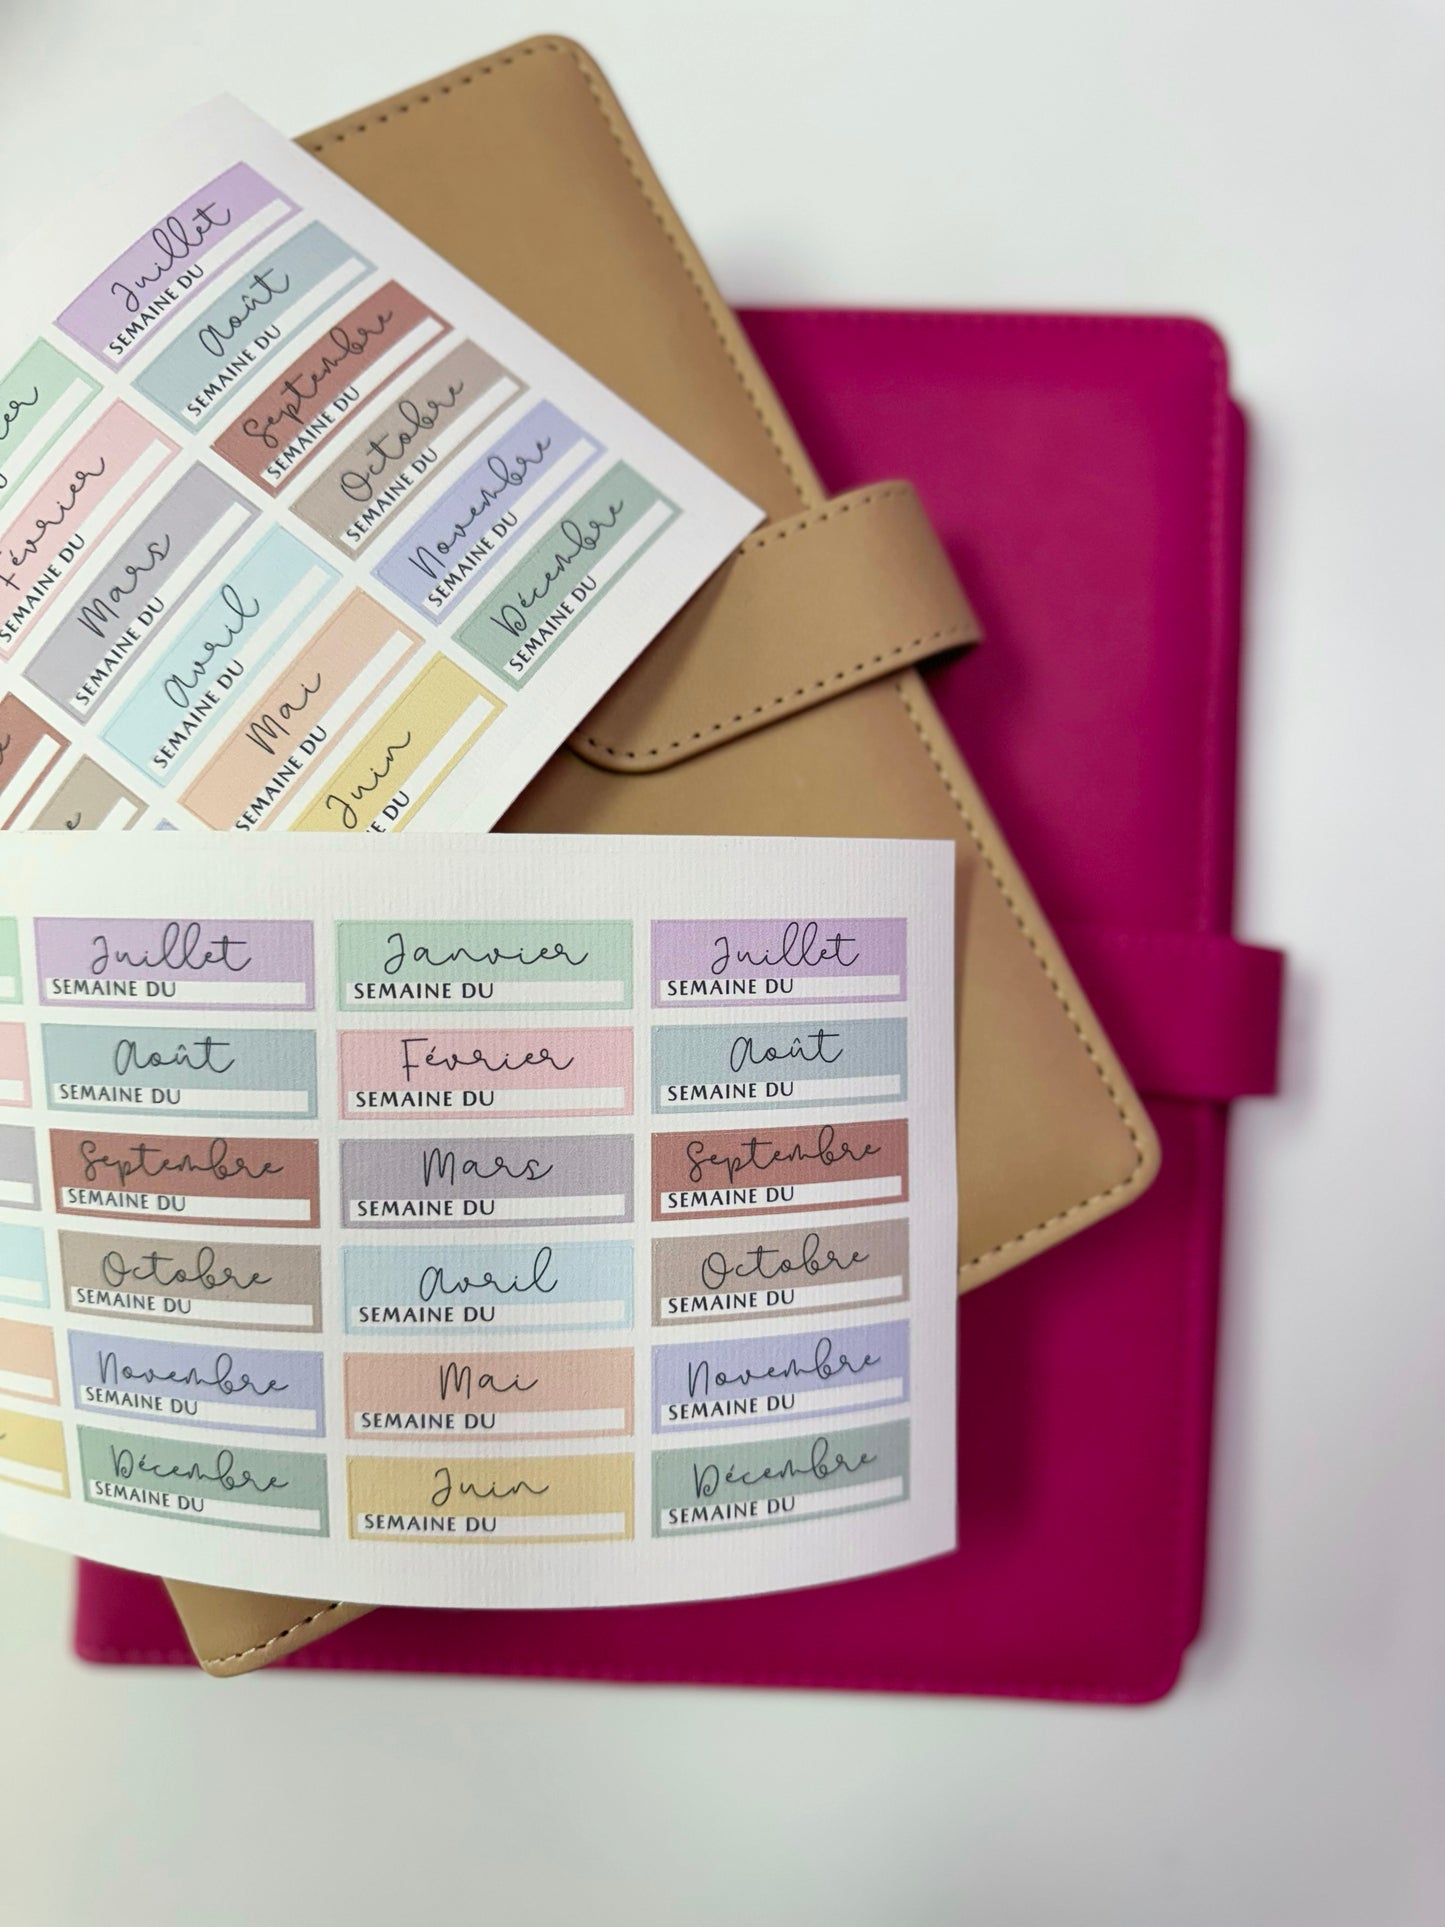 Juillet
SEMAINE DU
Août
SEMAINE DU
Septembre
SEMAINE DU
Octobre
SEMAINE DU
Novembre
SEMAINE DU
Décembre
SEMAINE DU
Février
SEMAINE DU
Mars
SEMAINE DU
Avril
SEMAINE DU
Mai
SEMAINE DU
Juin
Juillet
SEMAINE DU
Août
SEMAINE DU
Septembre
SEMAINE DU
Octobre
SEMAINE DU
Novembre
SEMAINE DU
Décembre
SEMAINE DU
Janvier
SEMAINE DU
Février
SEMAINE DU
Mars
SEMAINE DU
Avril
SEMAINE DU
Mai
SEMAINE DU
Juin
SEMAINE DU
Juillet
SEMAINE DU
Août
SEMAINE DU
Septembre
SEMAINE DU
Octobre
SEMAINE DU
Novembre
SEMAINE DU
Décembre
SEMAINE DU